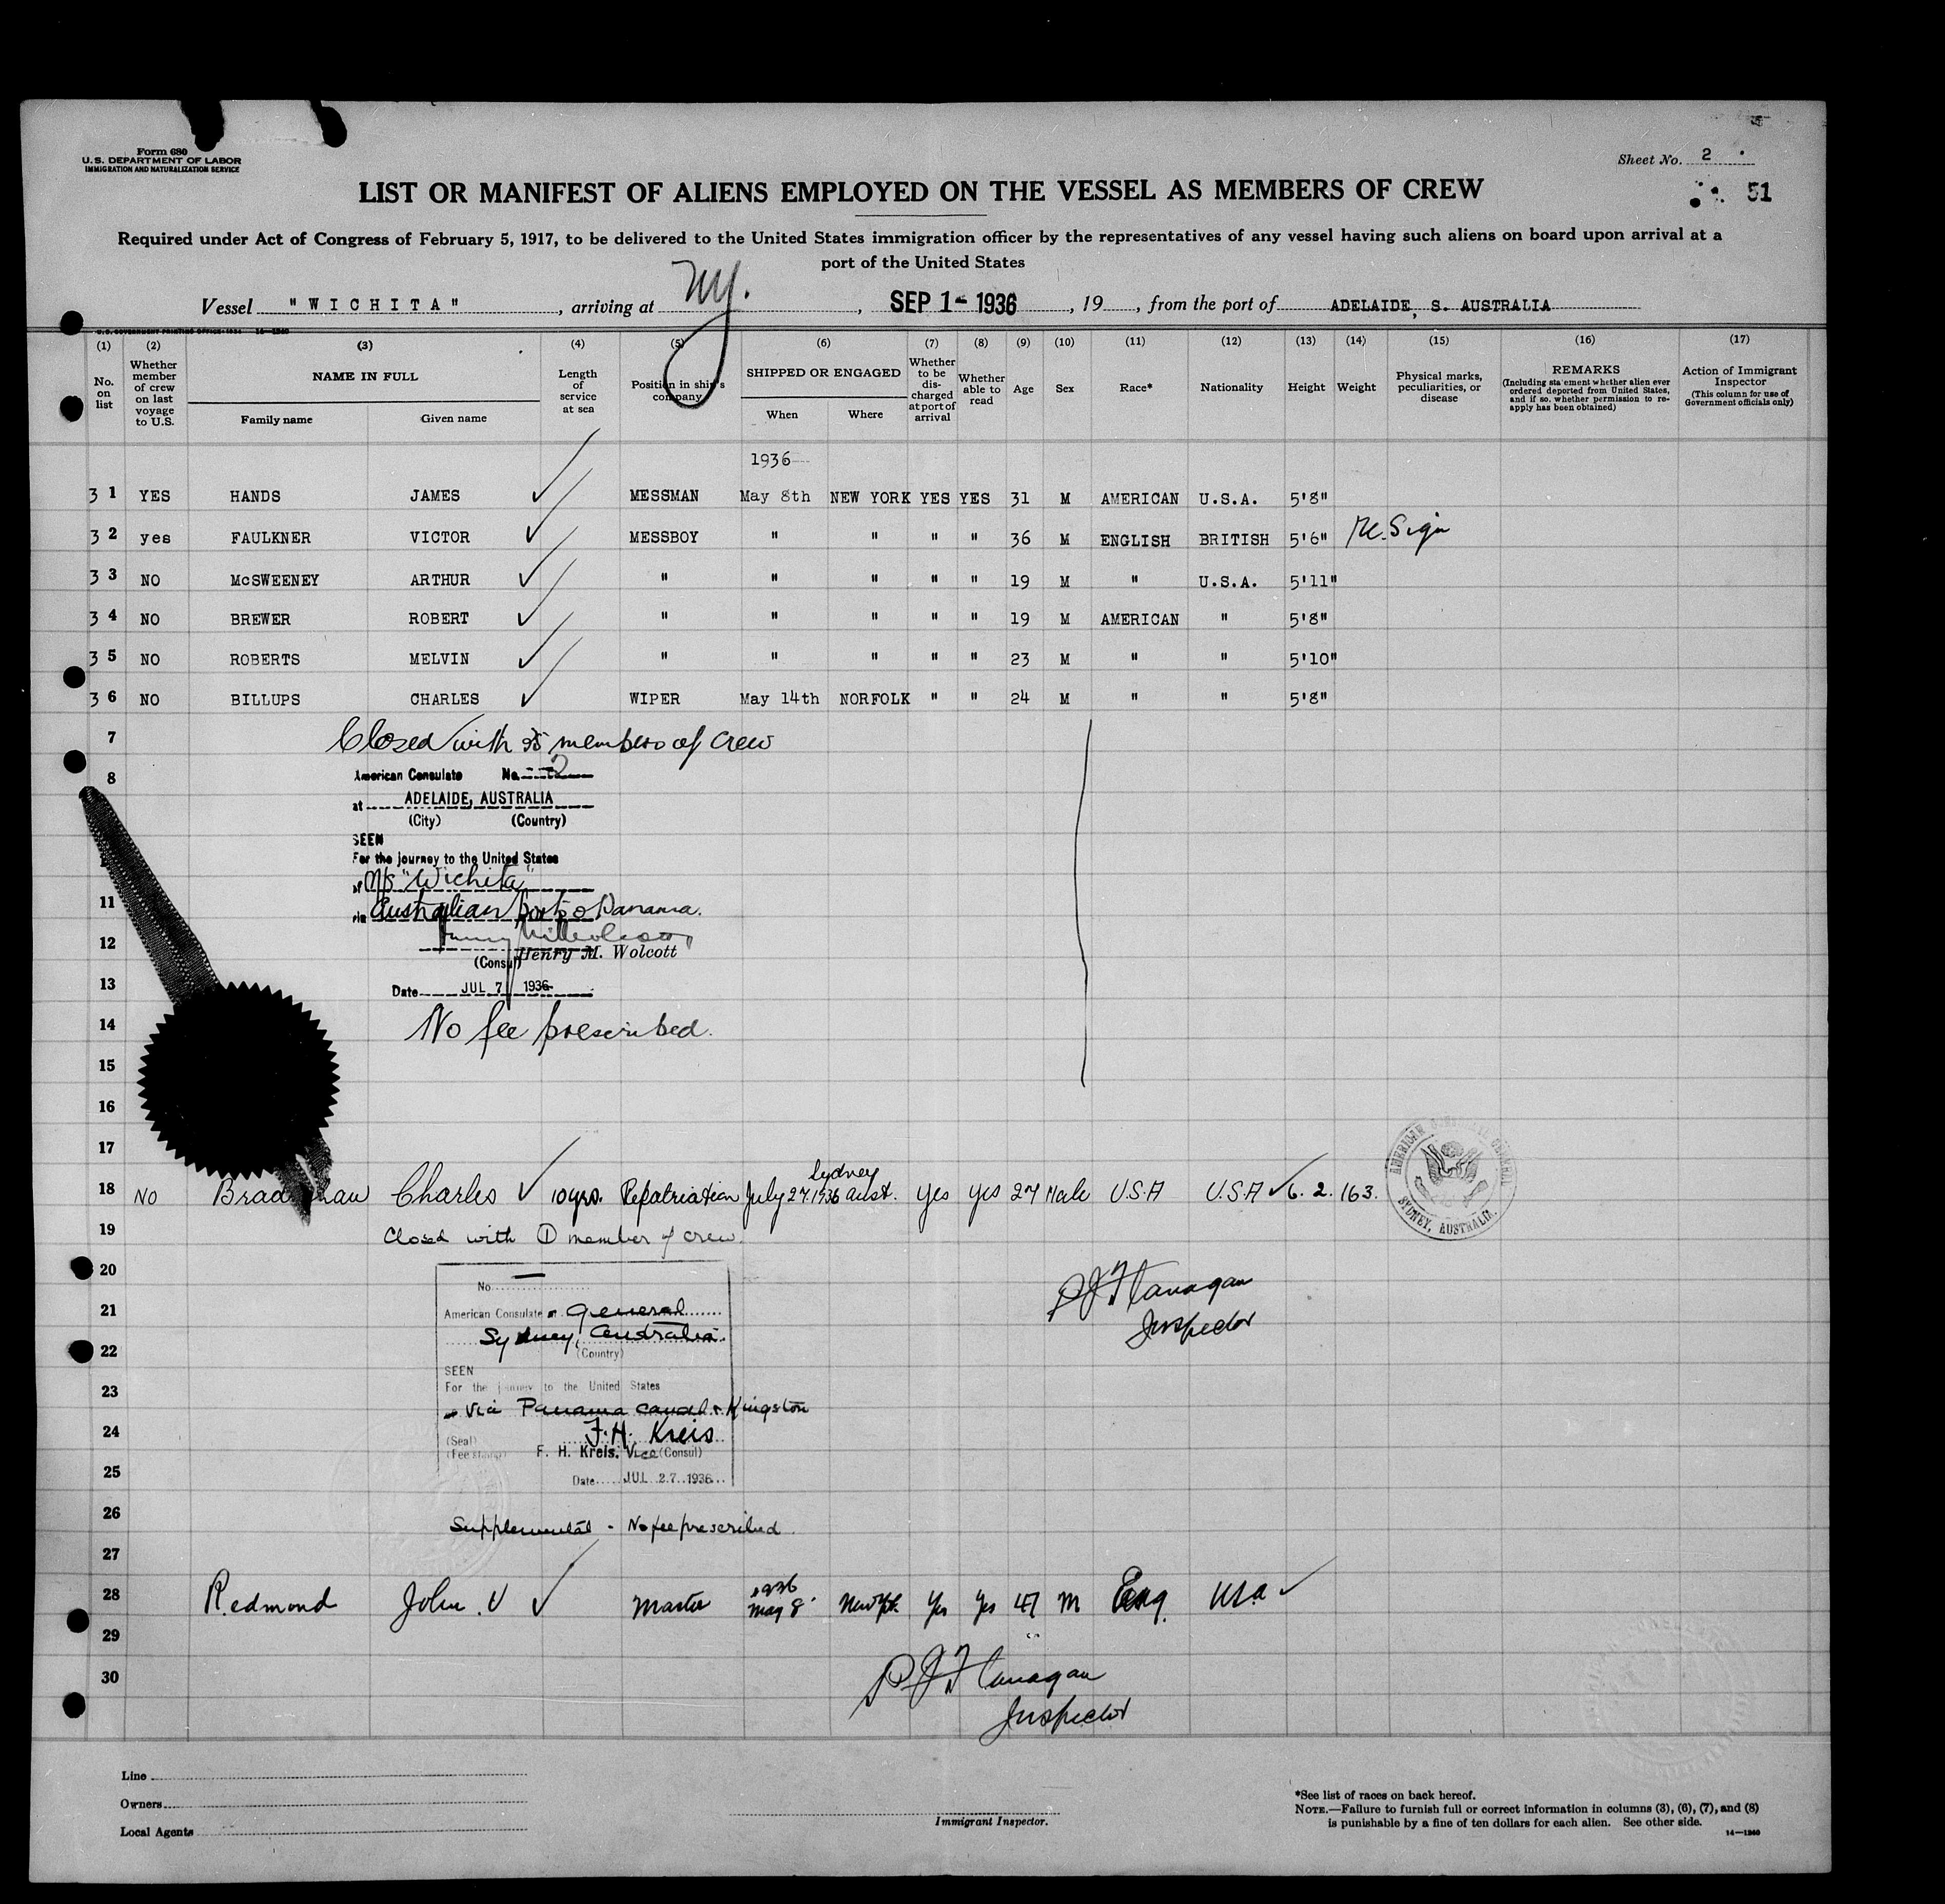 Form 680
U.S. DEPARTMENT OF LABOR
IMMIGRATION AND NATURALIZATION SERVICE
Sheet No. 2
51
LIST OR MANIFEST OF ALIENS EMPLOYED ON THE VESSEL AS MEMBERS OF CREW
Required under Act of Congress of February 5, 1917, to be delivered to the United States immigration officer by the representatives of any vessel having such aliens on board upon arrival at a
port of the United States
Vessel "WICHITA", arriving at NY., SEP 1 - 1936, 19, from the port of ADELAIDE, S. AUSTRALIA
U.S. GOVERNMENT PRINTING OFFICE: 1934 14—1240
(1) (2) (3) (4) (5) (6) (7) (8) (9) (10) (11) (12) (13) (14) (15) (16) (17)
No. on list
Whether member of crew on last voyage to U.S.
NAME IN FULL
Family name Given name
Length of service at sea
Position in ship's company
SHIPPED OR ENGAGED
When Where
Whether to be discharged at port of arrival
Whether able to read
Age
Sex
Race*
Nationality
Height
Weight
Physical marks, peculiarities, or disease
REMARKS
(Including statement whether alien ever ordered deported from United States, and if so, whether permission to re-apply has been obtained)
Action of Immigrant Inspector
(This column for use of Government officials only)
1936
3 1 YES HANDS JAMES MESSMAN May 8th NEW YORK YES YES 31 M AMERICAN U.S.A. 5'8"
3 2 yes FAULKNER VICTOR MESSBOY " " " " 36 M ENGLISH BRITISH 5'6" Re.Sign
3 3 NO McSWEENEY ARTHUR " " " " " 19 M " U.S.A. 5'11"
3 4 NO BREWER ROBERT " " " " " 19 M AMERICAN " 5'8"
3 5 NO ROBERTS MELVIN " " " " " 23 M " " 5'10"
3 6 NO BILLUPS CHARLES WIPER May 14th NORFOLK " " 24 M " " 5'8"
7 Closed with 35 members of crew
8 American Consulate No. 2
at ADELAIDE, AUSTRALIA
(City) (Country)
SEEN
For the journey to the United States
of M/S "Wichita"
11 via Australian ports & Panama.
12 Henry M. Wolcott
(Consul)
13 Date JUL 7 1936
14 No fee prescribed.
15
16
17
18 NO Bradshaw Charles 10 yrs. Repatriation July 27.1936 Sydney Aust. yes yes 27 Male U.S.A U.S.A 6. 2. 163.
AMERICAN CONSULATE GENERAL SYDNEY, AUSTRALIA.
19 Closed with 1 member of crew.
20 No.
P J Flanagan
21 American Consulate General
Inspector
Sydney, Australia.
22 (Country)
SEEN
23 For the journey to the United States
via Panama Canal & Kingston
24 F.H. Kreis
(Seal)
(Fee stamp) F. H. Kreis, Vice (Consul)
25 Date JUL 27 1936
26 Supplemental - No fee prescribed.
27
28 Redmond John. V Master 1936 May 8 New York Yes Yes 47 M Eng. USA
29
30 P J Flanagan
Inspector
Line
Owners
Local Agents
Immigrant Inspector.
*See list of races on back hereof.
NOTE.—Failure to furnish full or correct information in columns (3), (6), (7), and (8)
is punishable by a fine of ten dollars for each alien. See other side.
14—1240